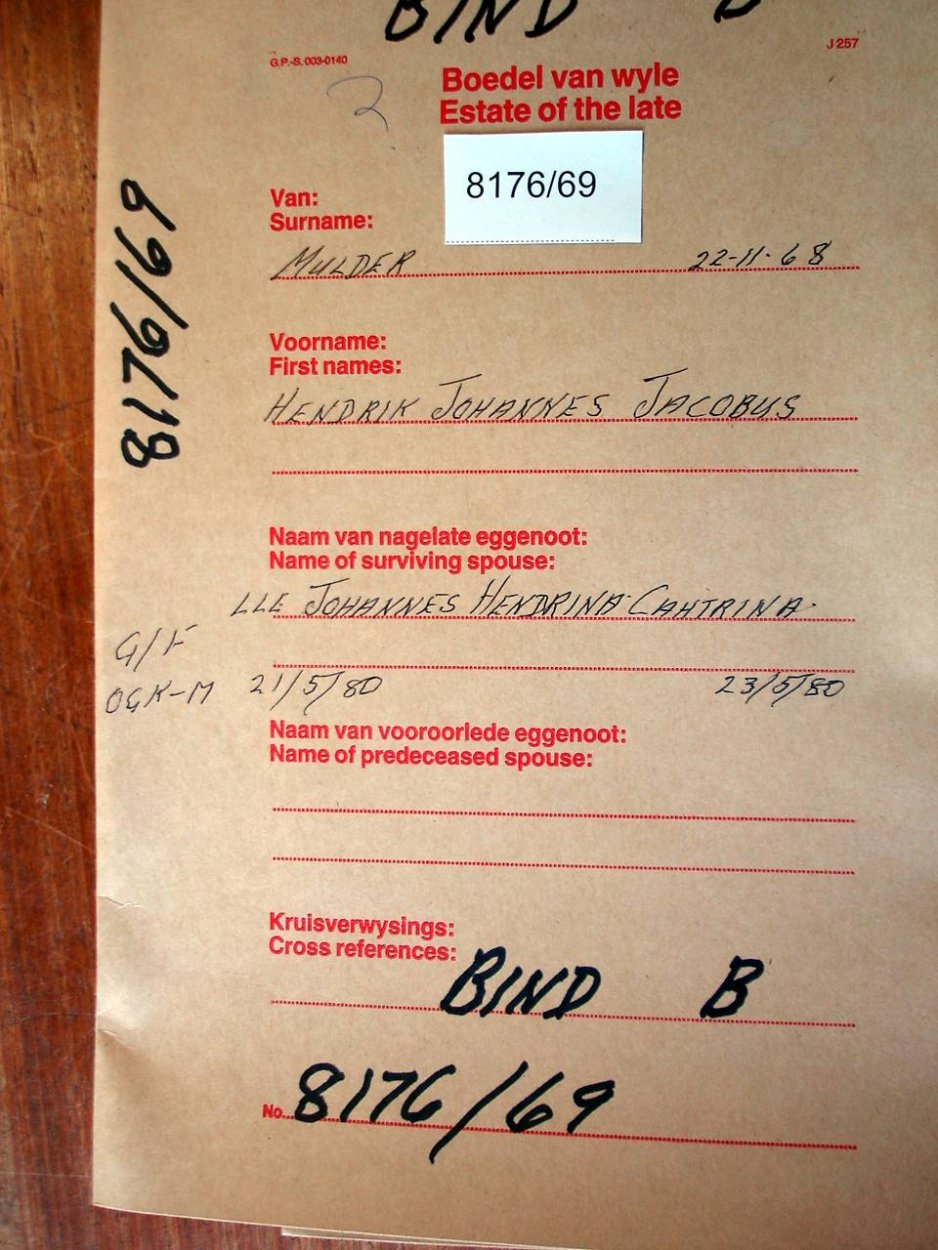 BIND B
G.P.-S. 003-0140
J 257
2
Boedel van wyle
Estate of the late
8176/69
8176/69
Van:
Surname:
MULDER 22-11-68
Voorname:
First names:
HENDRIK JOHANNES JACOBUS
Naam van nagelate eggenoot:
Name of surviving spouse:
LLE JOHANNES HENDRINA CAHTRINA
G/F
OGK-M 21/5/80 23/5/80
Naam van vooroorlede eggenoot:
Name of predeceased spouse:
Kruisverwysings:
Cross references:
BIND B
No. 8176/69